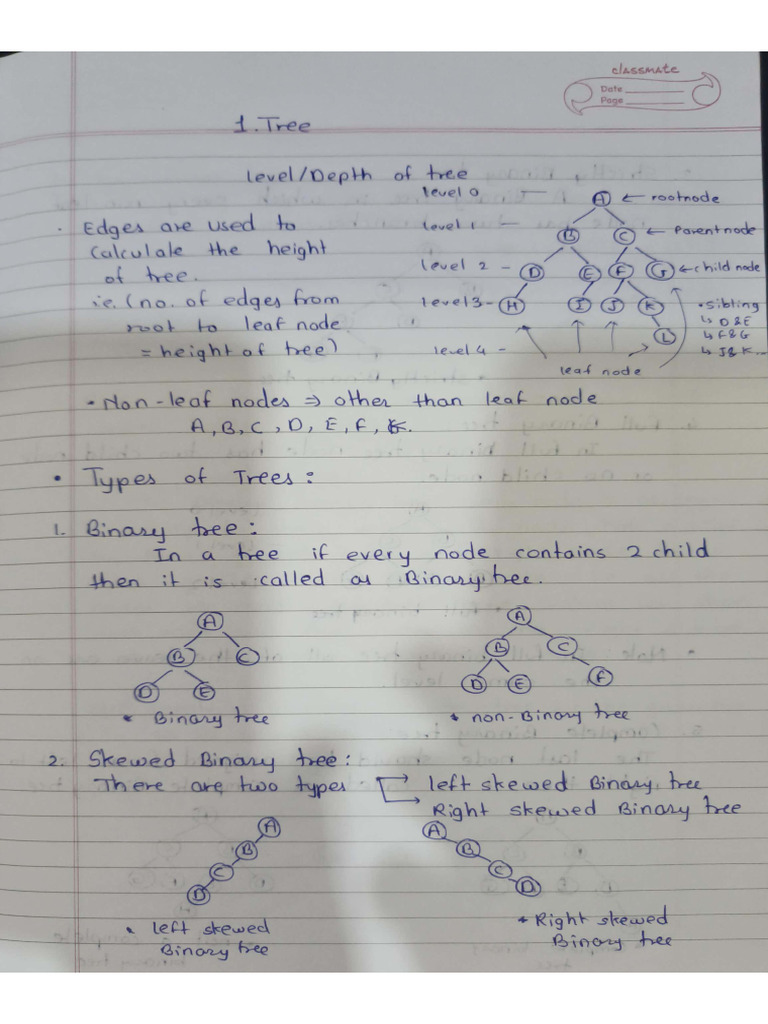 classmate
Date
Page
1. Tree
Level/Depth of tree
level 0 — A ← rootnode
• Edges are used to
calculate the height
of tree.
i.e. (no. of edges from
root to leaf node
= height of tree)
level 1 — B C ← Parent node
level 2 – D E F G ← child node
level 3 – H I J K
• Sibling
↳ D & E
↳ F & G
↳ J & K...
L
level 4 –
leaf node
• Non-leaf nodes ⇒ other than leaf node
A, B, C, D, E, F, K.
• Types of Trees :
1. Binary tree :
In a tree if every node contains 2 child
then it is called as Binary tree.
A
B C
D E
* Binary tree
A
B C
D E F
* non-Binary tree
2. Skewed Binary tree :
There are two types → left skewed Binary tree
→ Right skewed Binary tree
A
B
C
D
• left skewed
Binary tree
A
B
C
D
* Right skewed
Binary tree